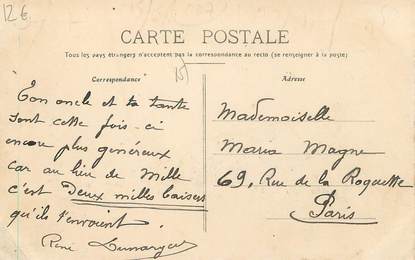 12€
CARTE POSTALE
Tous les pays étrangers n'acceptent pas la correspondance au recto (se renseigner à la poste)
Correspondance
Ton oncle et ta tante
sont cette fois-ci
encore plus généreux
car au lieu de Mille
c'est Deux milles baisers
qu'ils t'envoient.
René
Adresse
Mademoiselle
Maria Magne
69, Rue de la Roquette
Paris